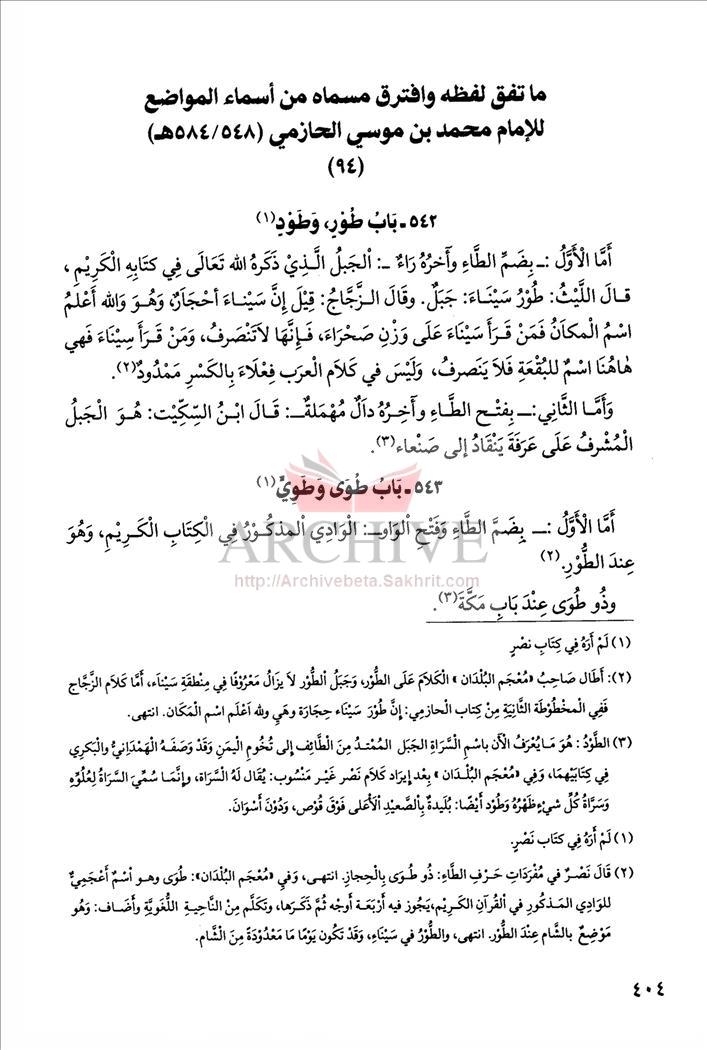 ما تفق لفظه وافترق مسماه من أسماء المواضع
للإمام محمد بن موسي الحازمي (٥٨٤/٥٤٨هـ)
(٩٤)
٥٤٢ ـ بَابُ طُوْرِ، وَطَوْدِ(١)
أَمَّا الْأَوَّلُ :ـ بِضَمِّ الطَّاءِ وآخرُهُ رَاءٌ ـ: اْلجَبلُ الَّذِيْ ذَكَرهُ الله تَعَالَى فِي كتابِهِ الْكَرِيْمِ ،
قالَ اللَّيْثُ: طُوْرُ سَيْنَاءَ: جَبَلٌ. وقالَ الزَّجَّاجُ: قِيْلَ إنَّ سَيْنـاءَ أحْجَارٌ، وَهُوَ وَالله أَعْلَمُ
اسْمُ الْمكَانُ فَمَنْ قَرَأَ سَيْنَاءَ عَلَى وَزْنِ صَحْرَاءَ، فَإِنَّها لاَتَنْصَرفُ، وَمَنْ قَرَأَ سِيْنَاءَ فَهي
هٰاهُنَا اسْمٌ للبُقْعَةِ فَلاَ يَنَصرفُ، وَلَيْسَ في كَلَامِ الْعرَب فِعْلَاءَ بِالكَسْرِ مَمْدُودٌ(٢).
وَأَمَّا الثَّاني: ـ بِفتْح الطَّاءِ وآخِرُهُ دالٌ مُهْمَلةٌ ـ: قـالَ ابْنُ السِّكِيْت: هُـوَ الْجَبلُ
الْمُشْرفُ عَلَى عَرَفَةَ يَنْقَادُ إلى صَنْعاء(٣).
٥٤٣ ـ بَابُ طُوَى وَطَوِيٍّ(١)
أَمَّا الْأَوَّلُ :ـ بِضَمِّ الطَّاءِ وَفَتْحِ الْوَاوِ ـ: الْوَادِي اْلمذكُوْرُ فِي الْكِتَابِ الْكَرِيْمِ، وَهُوَ
عِندَ الطُّوْرِ.(٢)
وذُو طُوَى عِنْدَ بَابِ مَكَّةَ(٣).
ARCHIVE
http://Archivebeta.Sakhrit.com
(١) لَمْ أَرَهُ فِي كِتَابِ نَصْرٍ
(٢): أَطَال صَاحِبُ «مُعْجَم البُلْدَان» الْكَلاَمَ عَلَى الطُّوْر، وَجَبَلُ اْلطُّوْر لاَ يزَالُ مَعْرُوْفًا فِي مِنطقَةِ سَيْنَاء، أَمَّا كَلاَم الزَّجَّاجِ
فَفِي الْمَخْطُوْطَة الثَّانِيَةِ مِنْ كِتاب الحازمِي: إنَّ طُوْرَ سَيْنَاء حِجارَة وهي وَلله أَعْلَم اسْم الْمَكَان. انتهى.
(٣) الطَّوْدُ : هُوَ مَايُعْرَفُ الْآن باسْمِ السَّرَاةِ الجَبَل المُمْتَد مِنَ الطَّائِف إلى تُخُوم الْيمَن وَقَدْ وَصَفَـهُ الْهَمْدَانِيُّ والْبَكري
في كِتَابَيْهِمَا، وَفِي «مُعْجَم الْبُلْدَان» بعْد إيرَاد كَلاَم نَصْر غَيْر مَنْسُوب: يُقَال لَهُ السَّرَاة، وإنَّمَا سُمِّيَ السَّرَاةَ لِعُلُوِّهِ
وَسَرَاةُ كُلِّ شَيءٍ ظَهْرُهُ وَطَود أَيْضًا: بُلَيدةٌ بِاْلصَّعِيْدِ اْلَأعْلى فَوْقَ قُوْص، وَدُوْنَ أَسْوَانَ.
(١) لَمْ أَرَهُ فِي كِتَاب نَصْرٍ.
(٢) قَالَ نَصْرٌ في مُفْرَدَاتِ حَرفِ الطَّاءِ: ذُو طُوَى بِالْحِجازِ. انتهى، وَفِي «مُعْجَم الْبُلْدَان»: طُوَى وهـو اْسْمٌ أعْجَمِيٌّ
للوَادِي المَذْكُورِ في اْلقُرآنِ الكَرِيْم، يَجُوز فيه أَرْبَعَة أَوجُه ثُمَّ ذَكَرَها، وَتكَلَّم مِنْ النَّاحِيةِ اللُّغَوِيَّةِ وَأَضاف: وَهُوَ
مَوْضِعٌ بالشَّام عِنْدَ الطُّوْر. انتهى، والطُّوْرُ في سَيْنَاءِ، وَقَدْ تَكُون يَوْمًا مَا مَعْدُوْدَةً مِنَ الشَّام.
٤٠٤